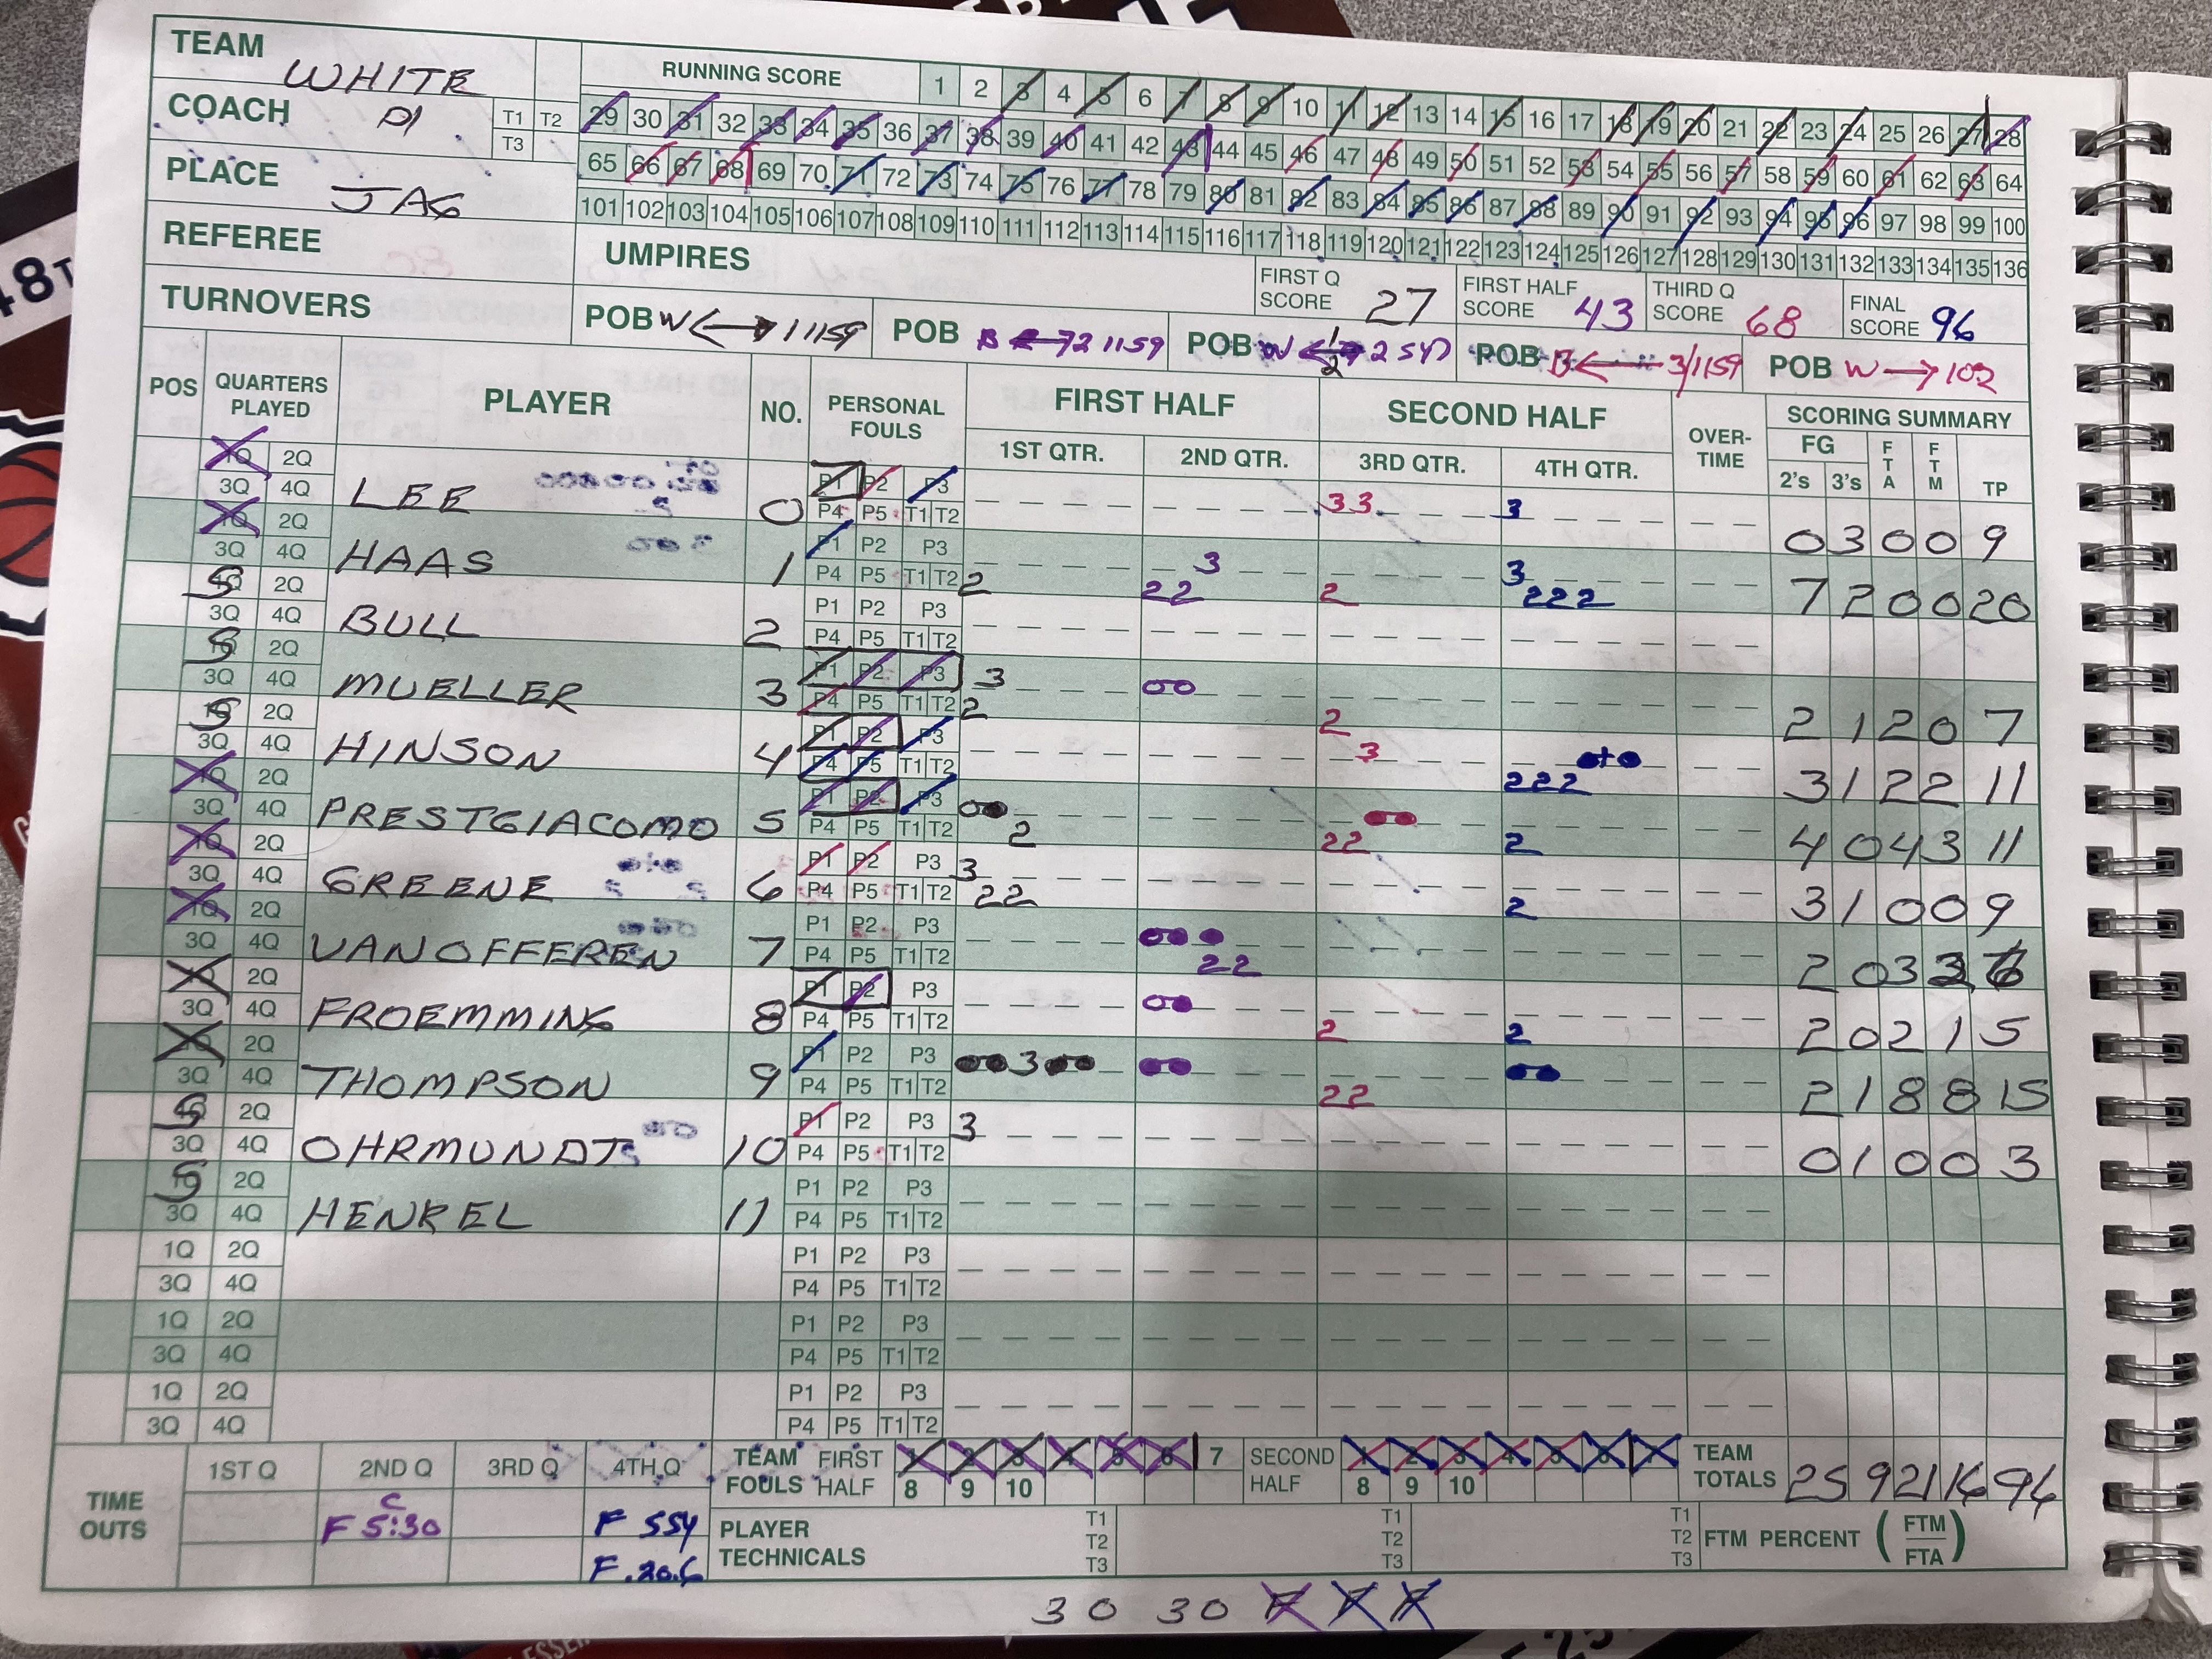 TEAM WHITE
RUNNING SCORE 1 2 3 4 5 6 7 8 9 10 11 12 13 14 15 16 17 18 19 20 21 22 23 24 25 26 27 28
COACH PJ T1 T2 T3
29 30 31 32 33 34 35 36 37 38 39 40 41 42 43 44 45 46 47 48 49 50 51 52 53 54 55 56 57 58 59 60 61 62 63 64
65 66 67 68 69 70 71 72 73 74 75 76 77 78 79 80 81 82 83 84 85 86 87 88 89 90 91 92 93 94 95 96 97 98 99 100
PLACE JAG
101 102 103 104 105 106 107 108 109 110 111 112 113 114 115 116 117 118 119 120 121 122 123 124 125 126 127 128 129 130 131 132 133 134 135 136
REFEREE
UMPIRES
FIRST Q SCORE 27 FIRST HALF SCORE 43 THIRD Q SCORE 68 FINAL SCORE 96
TURNOVERS
POB W 1 1159 POB B 2 1159 POB W 2 547 POB B 3/1159 POB W → 102
POS QUARTERS PLAYED PLAYER NO. PERSONAL FOULS FIRST HALF SECOND HALF OVER-TIME SCORING SUMMARY
1ST QTR. 2ND QTR. 3RD QTR. 4TH QTR. FG 2's 3's FTA FTM TP
1Q 2Q 3Q 4Q LEE 0 P1 P2 P3 P4 P5 T1 T2 33 3 0 3 0 0 9
1Q 2Q 3Q 4Q HAAS 1 P1 P2 P3 P4 P5 T1 T2 2 3 22 2 3 222 7 2 0 0 20
S 2Q 3Q 4Q BULL 2 P1 P2 P3 P4 P5 T1 T2
S 2Q 3Q 4Q MUELLER 3 P1 P2 P3 P4 P5 T1 T2 3 2 00 2 2 1 2 0 7
S 2Q 3Q 4Q HINSON 4 P1 P2 P3 P4 P5 T1 T2 3 222 3 1 2 2 11
1Q 2Q 3Q 4Q PRESTGIACOMO 5 P1 P2 P3 P4 P5 T1 T2 2 22 2 4 0 4 3 11
1Q 2Q 3Q 4Q GREENE 6 P1 P2 P3 P4 P5 T1 T2 3 22 2 3 1 0 0 9
1Q 2Q 3Q 4Q VANOFFEREN 7 P1 P2 P3 P4 P5 T1 T2 22 2 0 3
1Q 2Q 3Q 4Q FROEMMING 8 P1 P2 P3 P4 P5 T1 T2 2 2 2 0 2 1 5
1Q 2Q 3Q 4Q THOMPSON 9 P1 P2 P3 P4 P5 T1 T2 3 22 2 1 8 8 15
S 2Q 3Q 4Q OHRMUNDT 10 P1 P2 P3 P4 P5 T1 T2 3 0 1 0 0 3
S 2Q 3Q 4Q HENKEL 11 P1 P2 P3 P4 P5 T1 T2
1Q 2Q 3Q 4Q P1 P2 P3 P4 P5 T1 T2
1Q 2Q 3Q 4Q P1 P2 P3 P4 P5 T1 T2
1Q 2Q 3Q 4Q P1 P2 P3 P4 P5 T1 T2
TIME OUTS 1ST Q 2ND Q 3RD Q 4TH Q
C F 5:30 F 554 F .20.6
TEAM FOULS FIRST HALF 1 2 3 4 5 6 7 8 9 10 SECOND HALF 1 2 3 4 5 6 7 8 9 10
TEAM TOTALS 25 9 21 16 96
PLAYER TECHNICALS T1 T2 T3 T1 T2 T3 T1 T2 T3
FTM PERCENT (FTM/FTA)
30 30 F F F